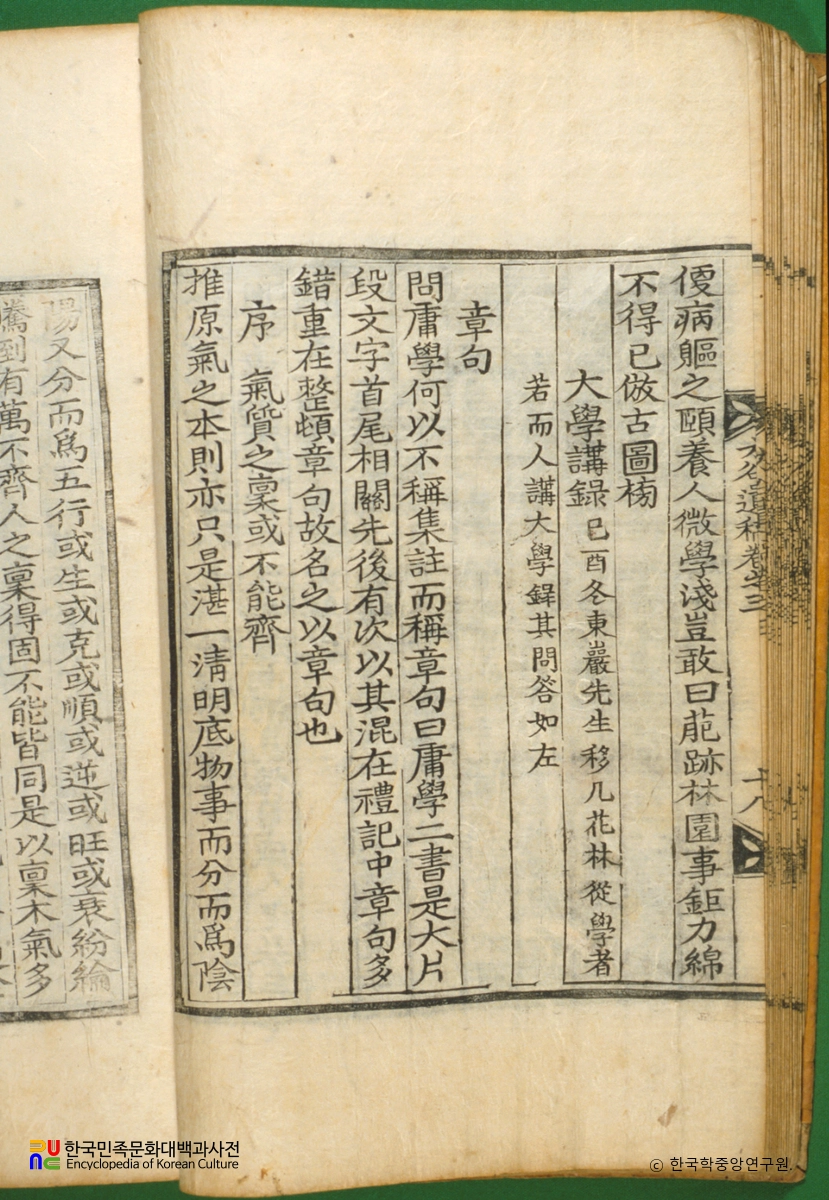 優病軀之頤養人微學淺豈敢曰葩跡林園事鉅力綿
不得已倣古圖㮄
大學講錄 己酉冬東巖先生移几花林從學者
若而人講大學錄其問答如左
章句
問庸學何以不稱集註而稱章句曰庸學二書是大片
段文字首尾相關先後有次以其混在禮記中章句多
錯重在整頓章句故名之以章句也
序 氣質之稟或不能齊
推原氣之本則亦只是湛一淸明底物事而分而爲陰
陽又分而爲五行或生或克或順或逆或旺或衰紛綸
騰到有萬不齊人之稟得固不能皆同是以稟木氣多
谷遺稿卷之三
十八
한국민족문화대백과사전
Encyclopedia of Korean Culture
© 한국학중앙연구원.